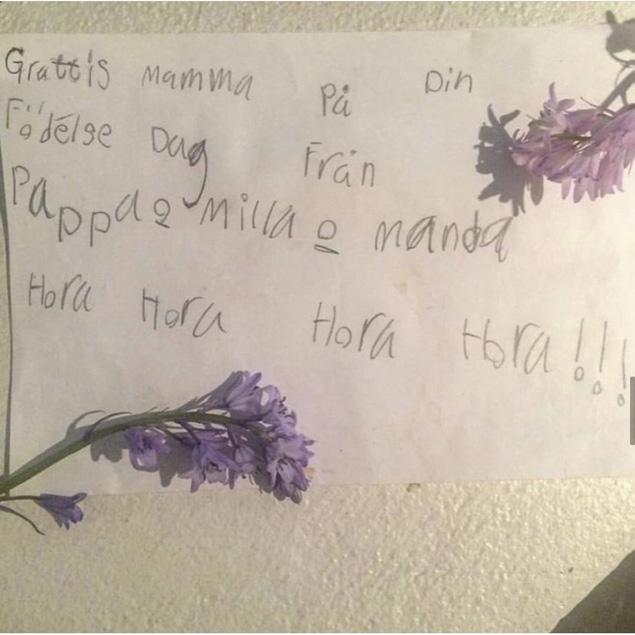 Grattis mamma På Din
Födelse Dag Från
Pappa o milla o manda
Hora Hora Hora Hora!!!